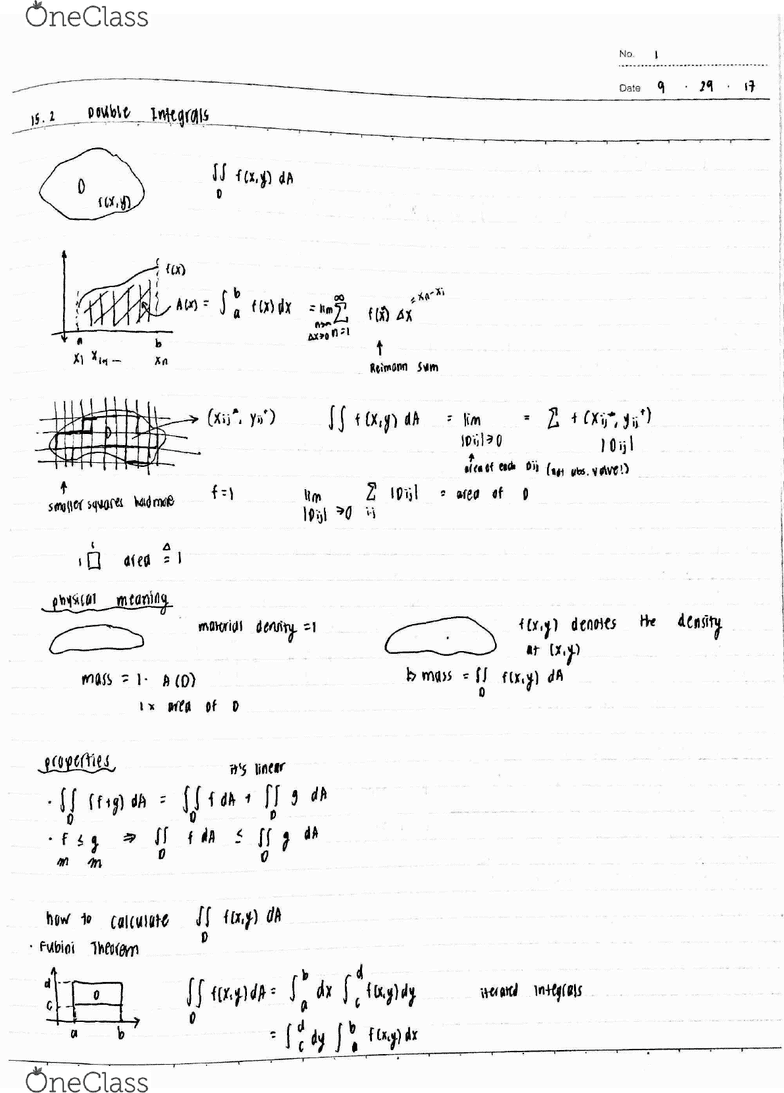 OneClass
No. 1
Date 9 · 29 · 17
15.2 Double Integrals
D
f(x,y)
∬_D f(x,y) dA
f(x)
A(x) = ∫_a^b f(x) dx = lim_{n→∞ Δx→0} ∑_{n=1}^∞ f(x) Δx = xn-xi
a b
x1 xi, ... xn
Reimann sum
D
(xij*, yij*) ∬ f(x,y) dA = lim_{|Dij|→0} = ∑ f(xij*, yij*) |Dij|
area of each Dij (not abs. value!)
smaller squares
f=1 lim_{|Dij|→0} ∑_{ij} |Dij| = area of D
1 1 area ≜ 1
physical meaning
material density =1
f(x,y) denotes the density
at (x,y)
mass = 1· A(D)
↳ mass = ∬_D f(x,y) dA
1 x area of D
properties
it's linear
· ∬_D (f+g) dA = ∬_D f dA + ∬_D g dA
· f ≤ g ⇒ ∬_D f dA ≤ ∬_D g dA
m m
how to calculate ∬_D f(x,y) dA
· Fubini Theorem
d
c
D
a b
∬_D f(x,y) dA = ∫_a^b dx ∫_c^d f(x,y) dy iterated integrals
= ∫_c^d dy ∫_a^b f(x,y) dx
OneClass